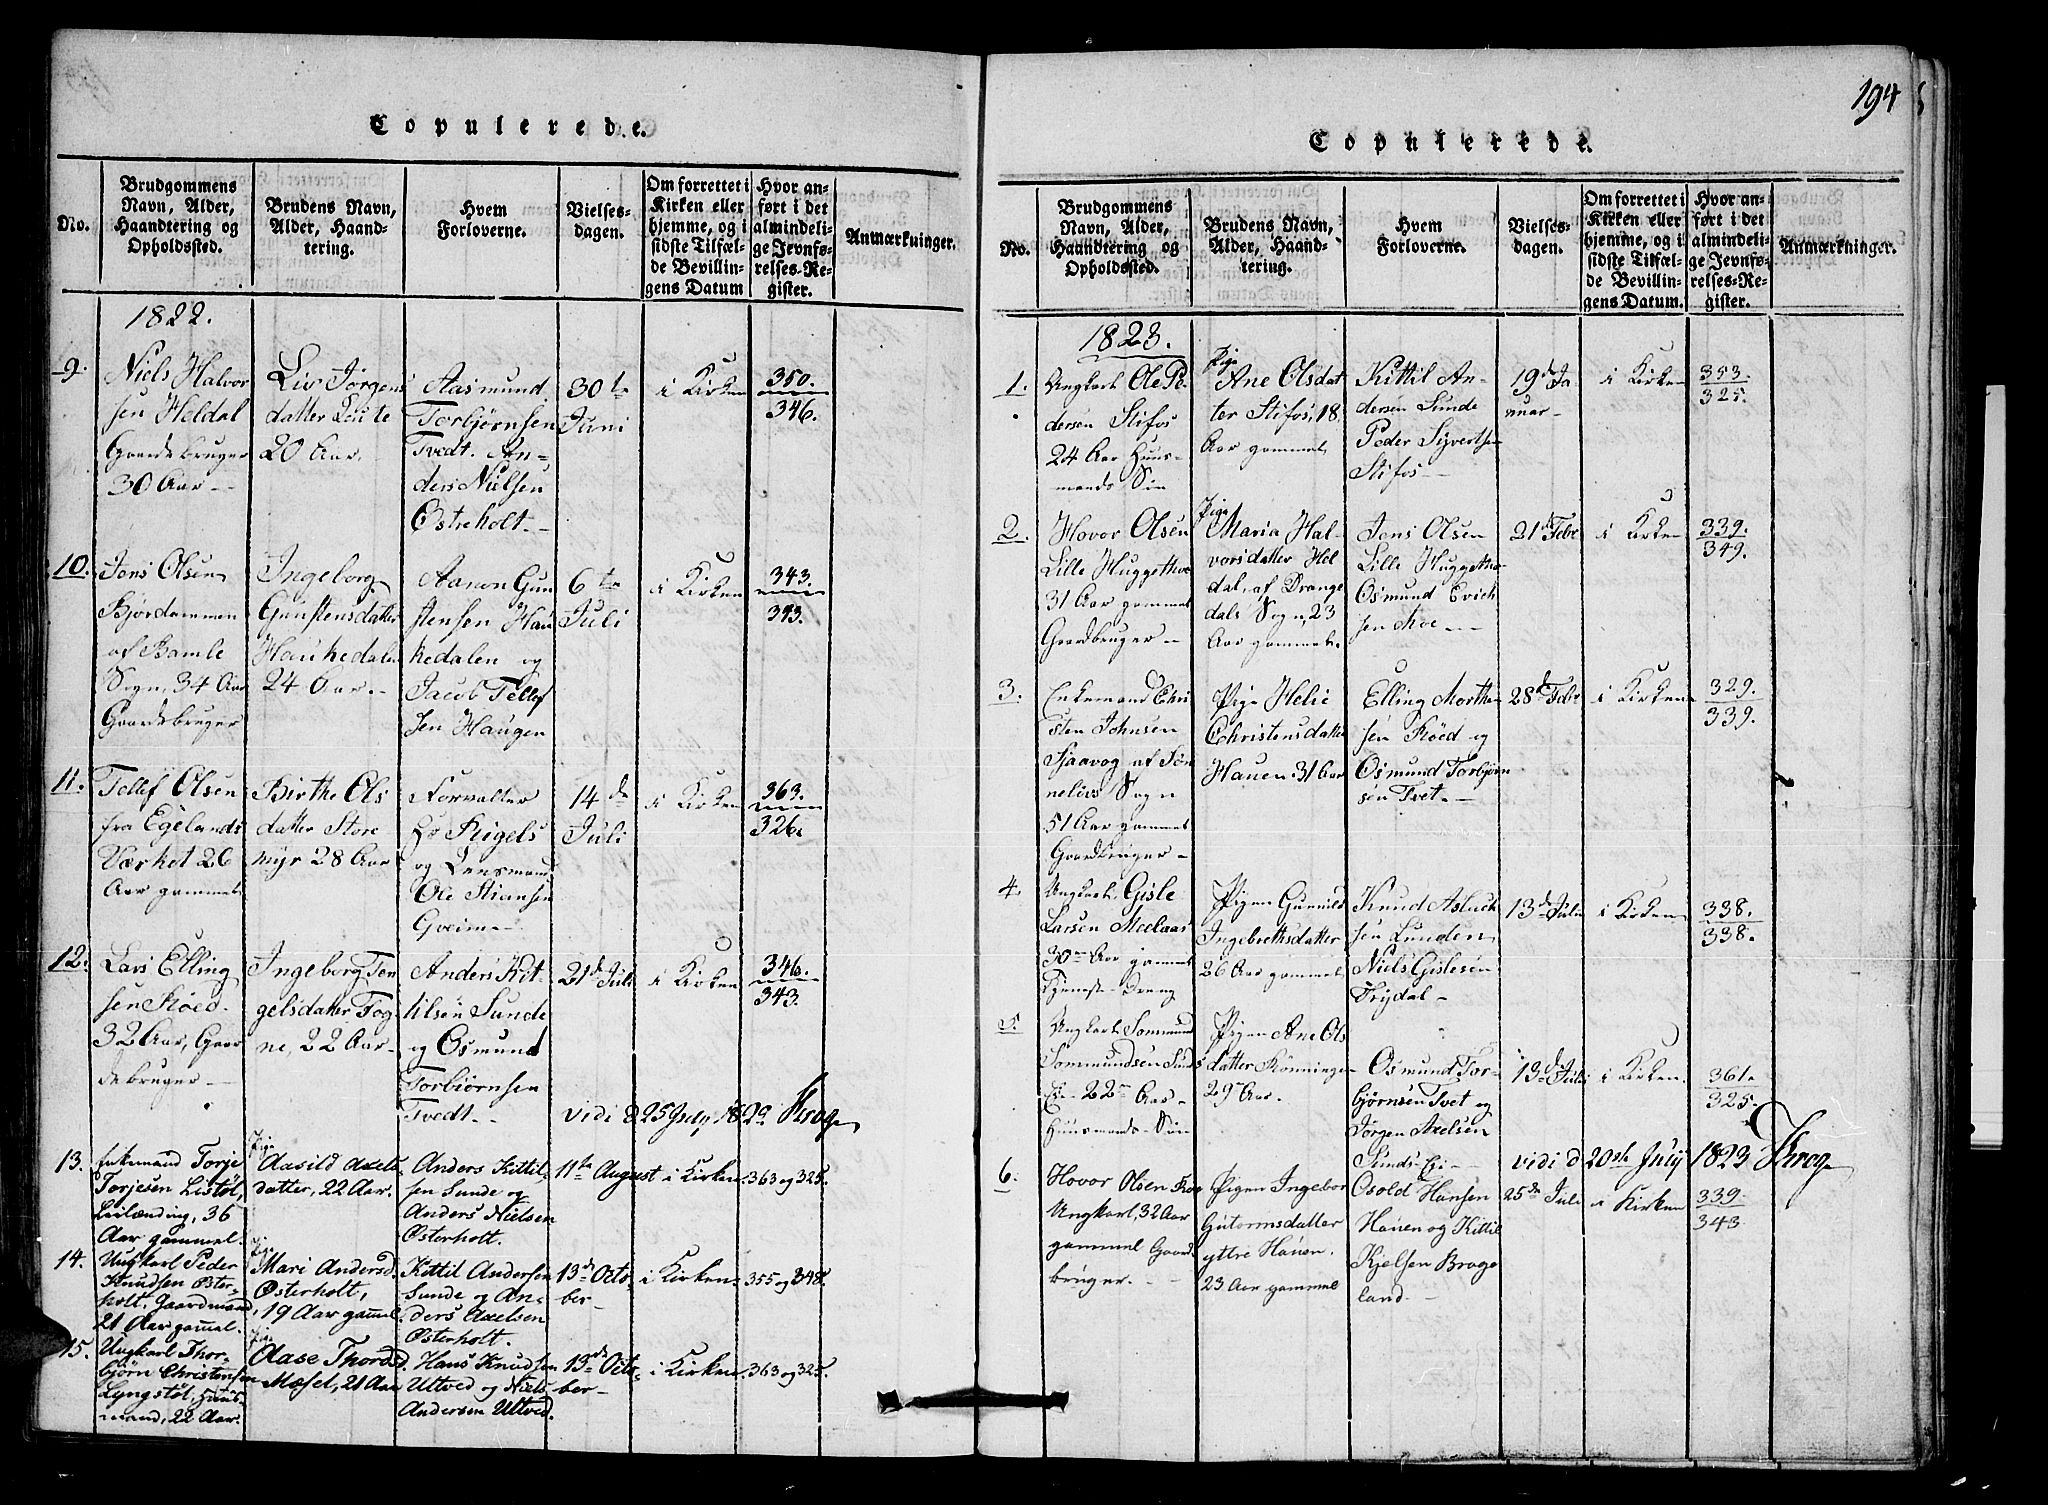 Copulerede.
No.
Brudgommens
Navn, Alder,
Haandtering og
Opholdssted.
Brudens Navn,
Alder, Haand-
tering.
Hvem
Forloverne.
Vielses-
dagen.
Om forrettet i
Kirken eller
hjemme, og i
sidste Tilfæl-
de Bevillin-
gens Datum
Hvor an-
ført i det
almindeli-
ge Jevnfø-
relses-Re-
gister.
Anmærkninger.
1822.
9.
Niels Halvor
sen Heldal
Gaardebruger
30 Aar -
Liv Jörgens
datter
20 Aar.
Aasmund
Torbjørnsen
Tvedt. An-
ders Nielsen
Ostreholt. -
30te
Juni
i Kirken
350.
346.
10.
Jens Olsen
Bjordammen
af Bamle
Sogn, 34 Aar
Gaardebruger
Ingeborg
Gunstensdatter
Haukedalen
24 Aar. -
Aanon Gun
stensen Hau
kedalen og
Jacob Tellef
sen Haugen
6te
Juli
i Kirken
343.
343.
11.
Tellef Olsen
fra Egelands
Værket 26
Aar gammel
Birthe Ols
datter Store
myr 28 Aar
Forvalter
Reigels
og Lensmand
Ole Stiansen
Gveim -
14de
Juli
i Kirken
363.
326.
12.
Lars Elling
sen Röed.
32 Aar, Gaar
debruger -
Ingeborg Ten
gelsdatter Fog
ne, 22 Aar -
Anders Kit
tilsen Sunde
og Osmund
Torbiørnsen
Tvedt. -
21de Juli
i Kirken
346.
343.
vidi d 25 July 1822 Krog
13.
Enkemand Torje
Torjesen Listöl,
Leilænding, 36
Aar gammel.
Pige
Aasild Axels
datter, 22 Aar.
Anders Kittil-
sen Sunde og
Anders Nielsen
Østerholt.
11te August
i Kirken.
363 og 325.
14.
Ungkarl Peder
Knudsen Øster-
holt, Gaardmand,
21 Aar gammel.
Pige
Mari Andersd.
Østerholt,
19 Aar gammel.
Kittil Andersen
Sunde og An-
ders Axelsen
Østerholt.
13de Octo-
ber -
i Kirken
355 og 348.
15.
Ungkarl Thor-
bjørn Christensen
Lyngstöl, Huus-
mand, 22 Aar.
Pige
Aase Thordsd.
Mæsel, 21 Aar
Hans Knudsen
Ultved og Niels
Andersen Ultved.
13de Octo-
ber -
i Kirken
363 og 325.
194
Copulerede.
No.
Brudgommens
Navn, Alder,
Haandtering og
Opholdssted.
Brudens Navn,
Alder, Haand-
tering.
Hvem
Forloverne.
Vielses-
dagen.
Om forrettet i
Kirken eller
hjemme, og i
sidste Tilfæl-
de Bevillin-
gens Datum.
Hvor an-
ført i det
almindeli-
ge Jevnfø-
relses-Re-
gister.
Anmærkninger.
1823.
1.
Ungkarl Ole Pe
dersen Stifos
24 Aar Huus-
mands Søn
Pige
Ane Olsdat
ter Stifos, 18
Aar gammel
Kittil An-
dersen Sunde
Peder Syvertsen
Stifos -
19de Ja
nuar -
i Kirken
353.
325.
2.
Hovor Olsen
Lille Huggethoe
31 Aar gammel
Gaardbruger -
Pige
Maria Hal-
vorsdatter Hel
dal, af Drange
dals Sogn, 23
Aar gammel.
Jens Olsen
Lille Huggetho
Osmund Erich
sen Moe -
21de Febr
i Kirken
339.
349.
3.
Enkemand Chri
sten Johnsen
Sjaavog af Sön
nelövs Sogn
51 Aar gammel
Gaardbruger -
Pige Helie
Christensdatter
Hauen 31 Aar
Elling Morthen
sen Röed og
Osmund Torbjørn
sen Tvet. -
28de Febr
i Kirken
329.
339.
4.
Ungkarl Gisle
Larsen Meelaas
30 Aar gammel
Tjeneste-Dreng
Pigen Gunild
Ingebrethsdatter
26 Aar gammel
Knud Aslack
sen Lunden
Niels Gislesen
Trydal -
13de Juli
i Kirken
338.
338.
5.
Ungkarl Sommund
Sommundsen Sunds
Eie 22 Aar -
Huusmands-Søn
Pigen Ane Ols
datter Rönningen
29 Aar.
Osmund Tor-
bjørnsen Tvet og
Jörgen Axelsen
Sunds-Eie -
13de Juli
i Kirken.
361.
325.
vidi d 20de July 1823 Krog
6.
Hovor Olsen
Ungkarl, 32 Aar
gammel Gaard-
bruger. -
Pigen Ingebor
Gutormsdatter
yttre Hauen.
23 Aar gammel
Osold Hansen
Hauen og Kittil
Kjelsen Broge
land. -
25de Juli
i Kirken
339.
343